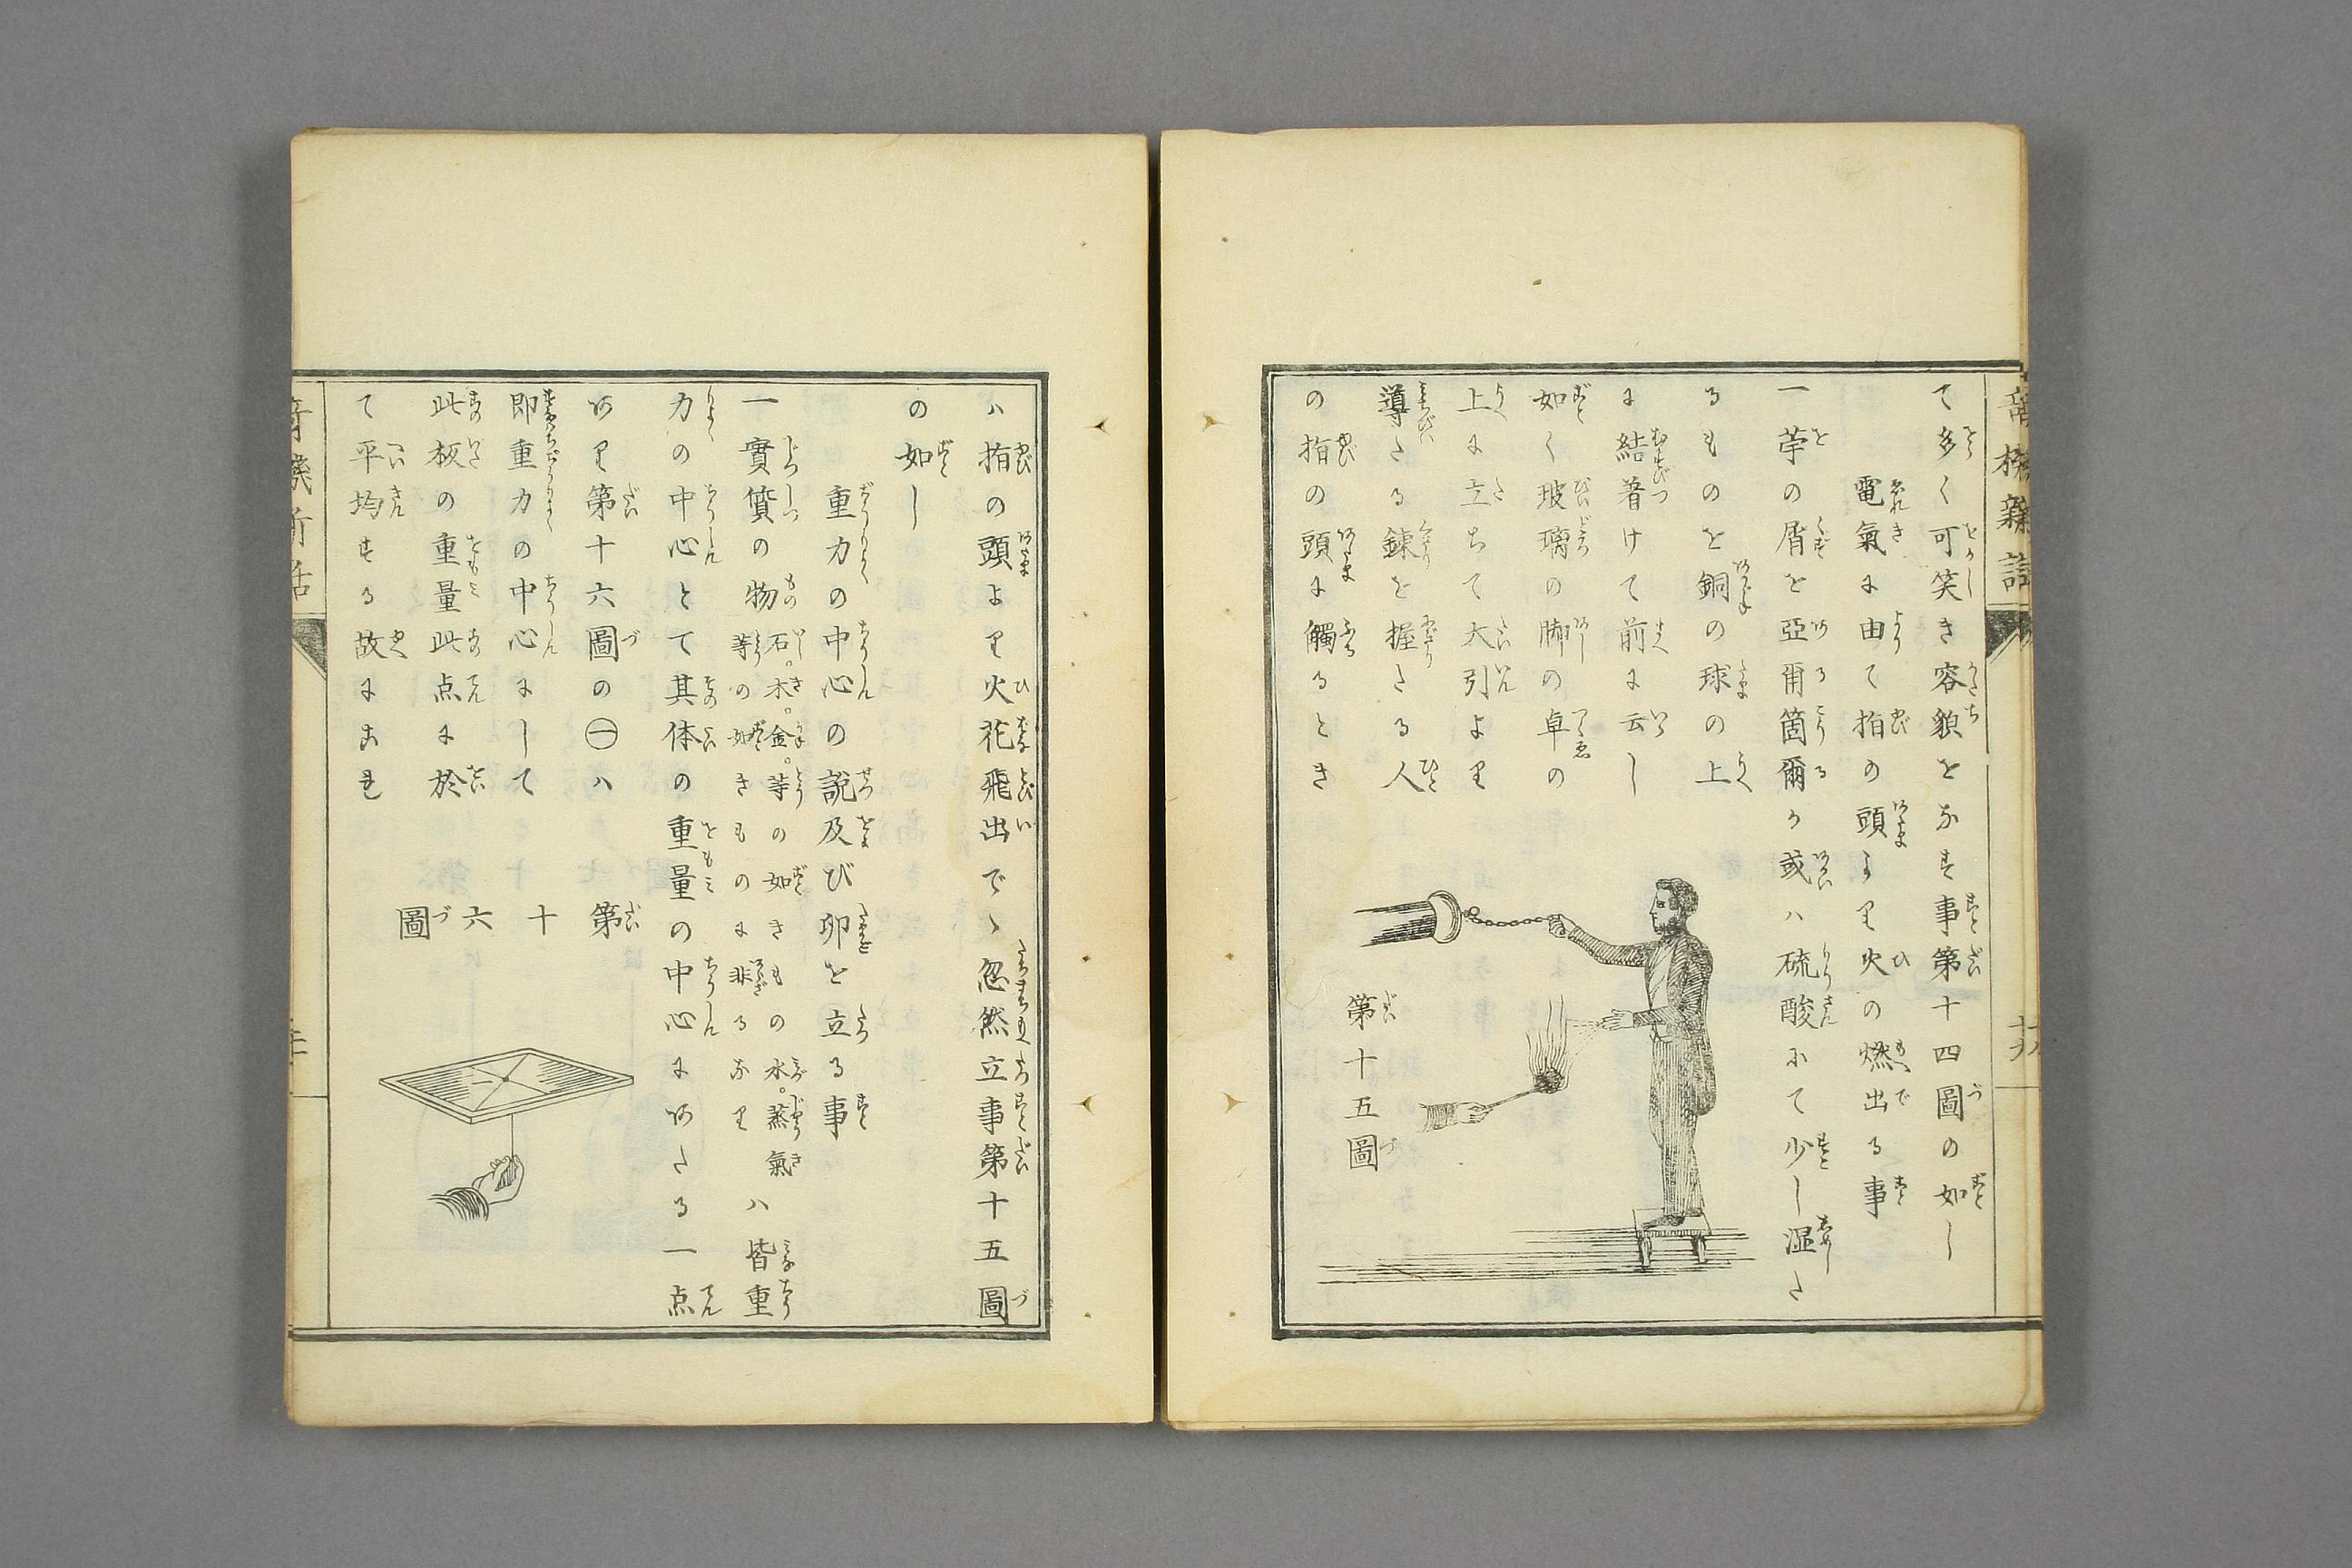 て多く可笑き容貌をなす事第十四圖の如し
電氣に由て指の頭より火の燃出る事
一苧の屑を亞爾箇爾か或ハ硫酸にて少し湿た
るものを銅の球の上
に結着けて前に云し
如く玻璃の脚の卓の
上に立ちて大引より
導きたる錬を握たる人
の指の頭に觸るとき
第十五圖
ハ指の頭より火花飛出でゝ忽然立事第十五圖
の如し
重力の中心の説及び卵を立る事
一實質の物
石。木。金。等の如きもの水。蒸氣
等の如きものに非るなり
ハ皆重
力の中心とて其体の重量の中心にあたる一点
あり第十六圖の㊀ハ
即重力の中心にして
此板の重量此点に於
て平均する故にこれ
第十六圖
一